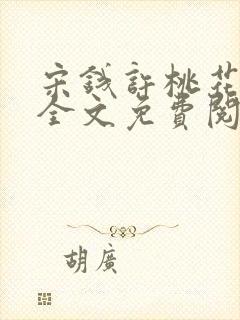 宋钱許桃花
全文免費閱
胡廣